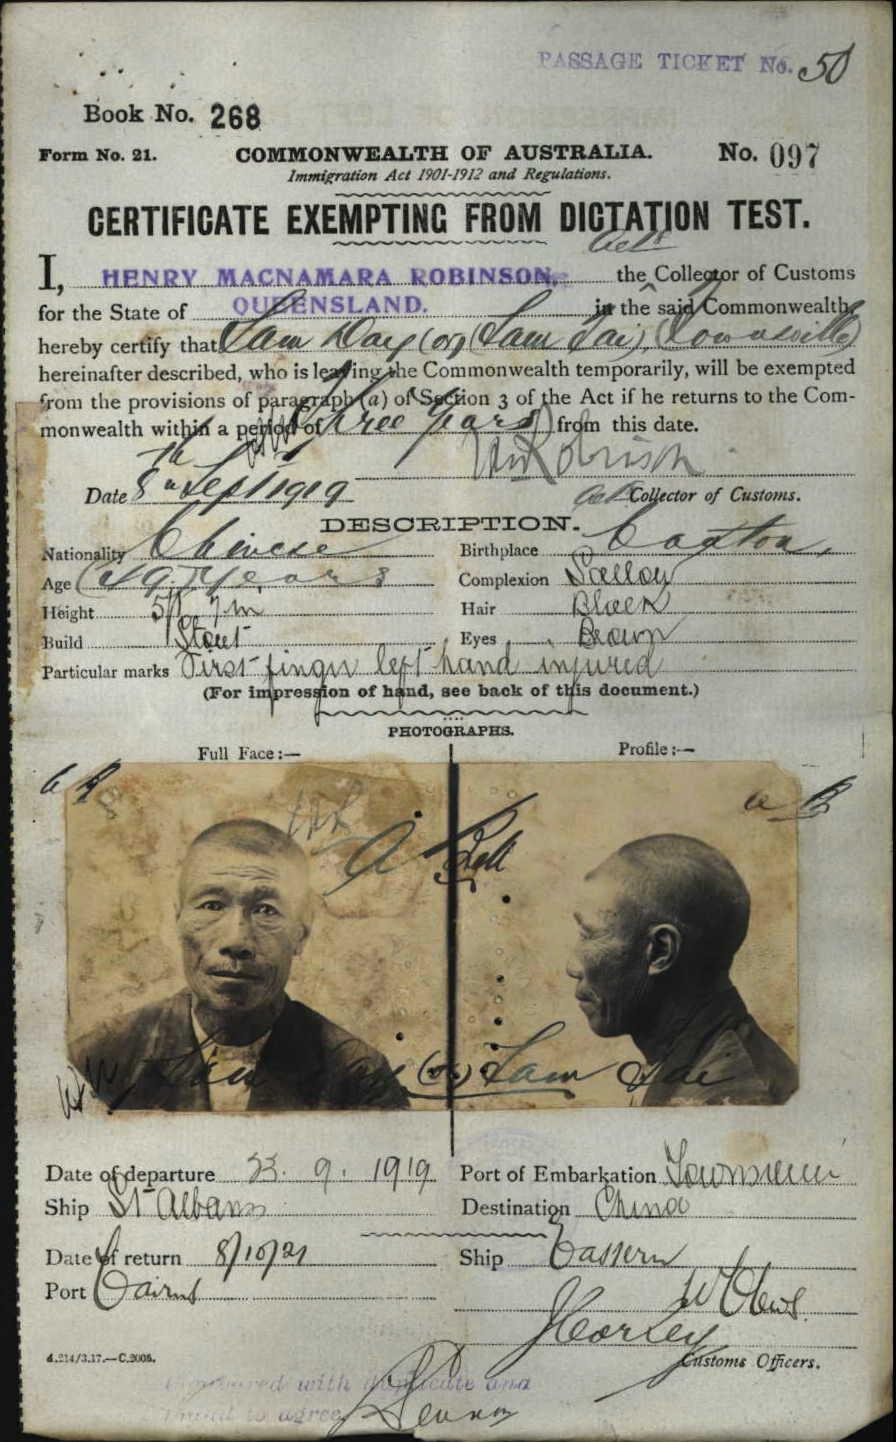 PASSAGE TICKET No. 50
Book No. 268
Form No. 21. COMMONWEALTH OF AUSTRALIA. No. 097
Immigration Act 1901-1912 and Regulations.
CERTIFICATE EXEMPTING FROM DICTATION TEST.
I, HENRY MACNAMARA ROBINSON, the Actg Collector of Customs
for the State of QUEENSLAND. in the said Commonwealth
hereby certify that Lam Day (or) (Lam Sai) (Townsville)
hereinafter described, who is leaving the Commonwealth temporarily, will be exempted
from the provisions of paragraph (a) of Section 3 of the Act if he returns to the Com-
monwealth within a period of Three Years from this date.
HM Robinson
Date 8th Sept 1919 Collector of Customs.
DESCRIPTION.
Nationality Chinese Birthplace Canton,
Age (49) years Complexion Sallow
Height 5ft 7in Hair Black
Build Stout Eyes Brown
Particular marks First finger left hand injured
(For impression of hand, see back of this document.)
PHOTOGRAPHS.
Full Face:— Profile:—
Lam Day (or) Lam Sai
Date of departure 23. 9. 1919 Port of Embarkation Townsville
Ship St Albans Destination China
Date of return 8/10/21 Ship Eastern
Port Cairns
Customs Officers.
4.214/3.17.—C.2005.
Compared with duplicate and
found to agree